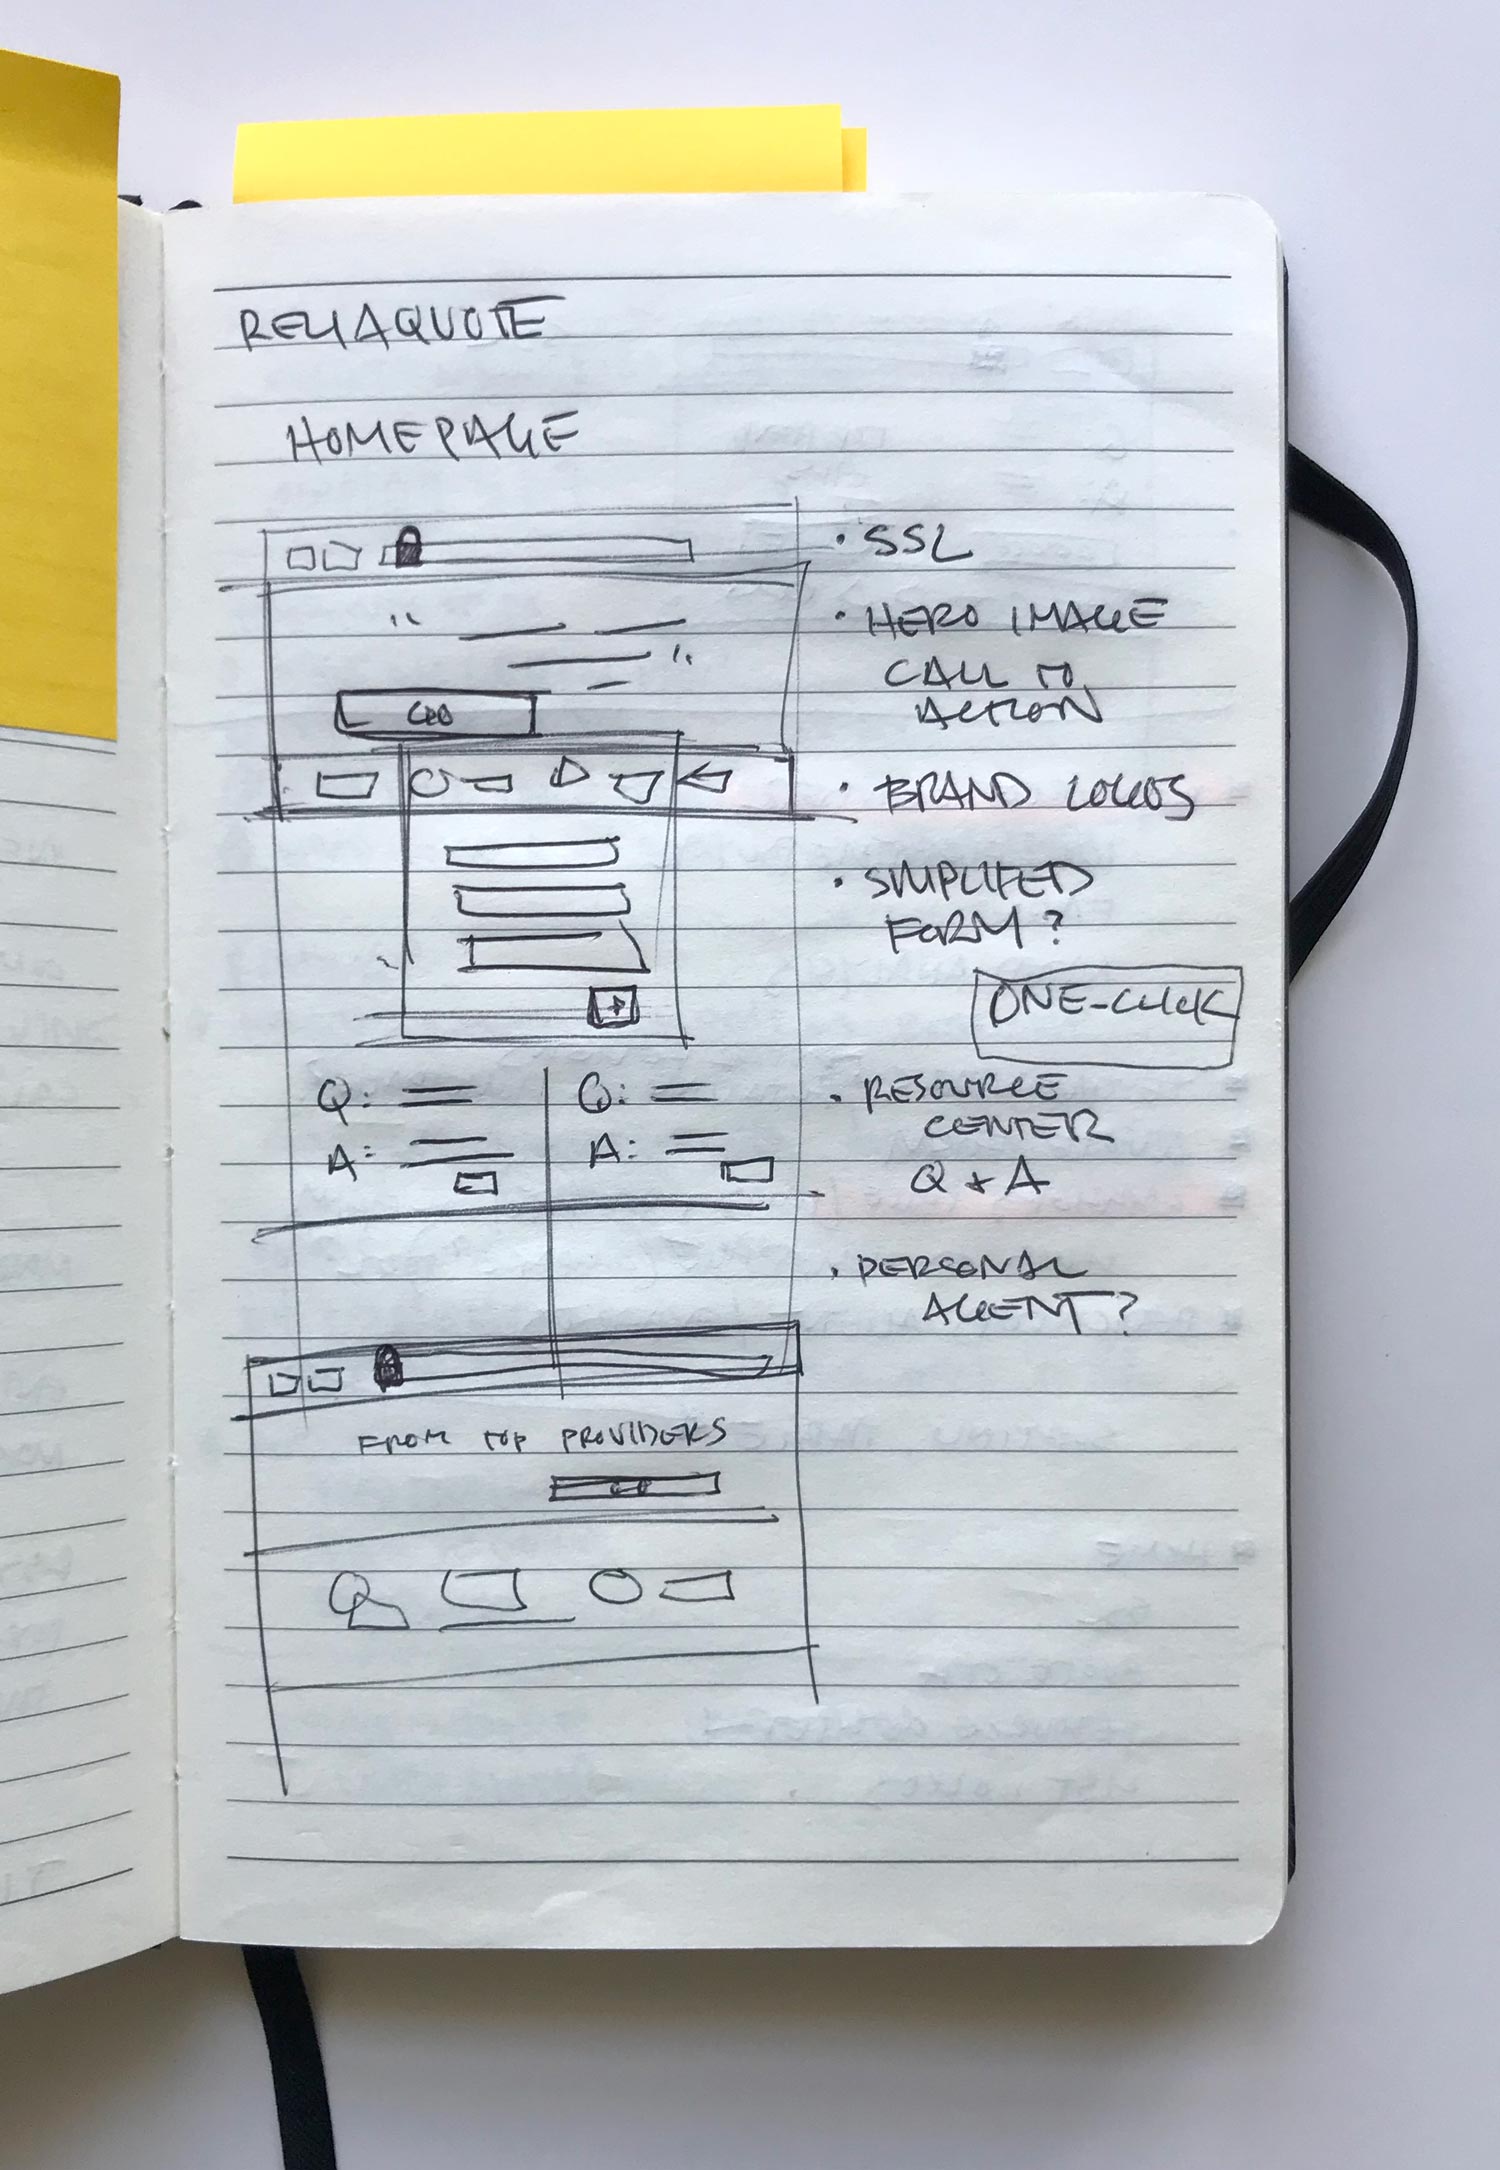 RELIAQUOTE
HOMEPAGE
• SSL
• HERO IMAGE
CALL TO
ACTION
• BRAND LOGOS
• SIMPLIFED
FORM?
ONE-CLICK
Q: Q:
A: A:
• RESOURCE
CENTER
Q & A
• PERSONAL
AGENT?
FROM TOP PROVIDERS